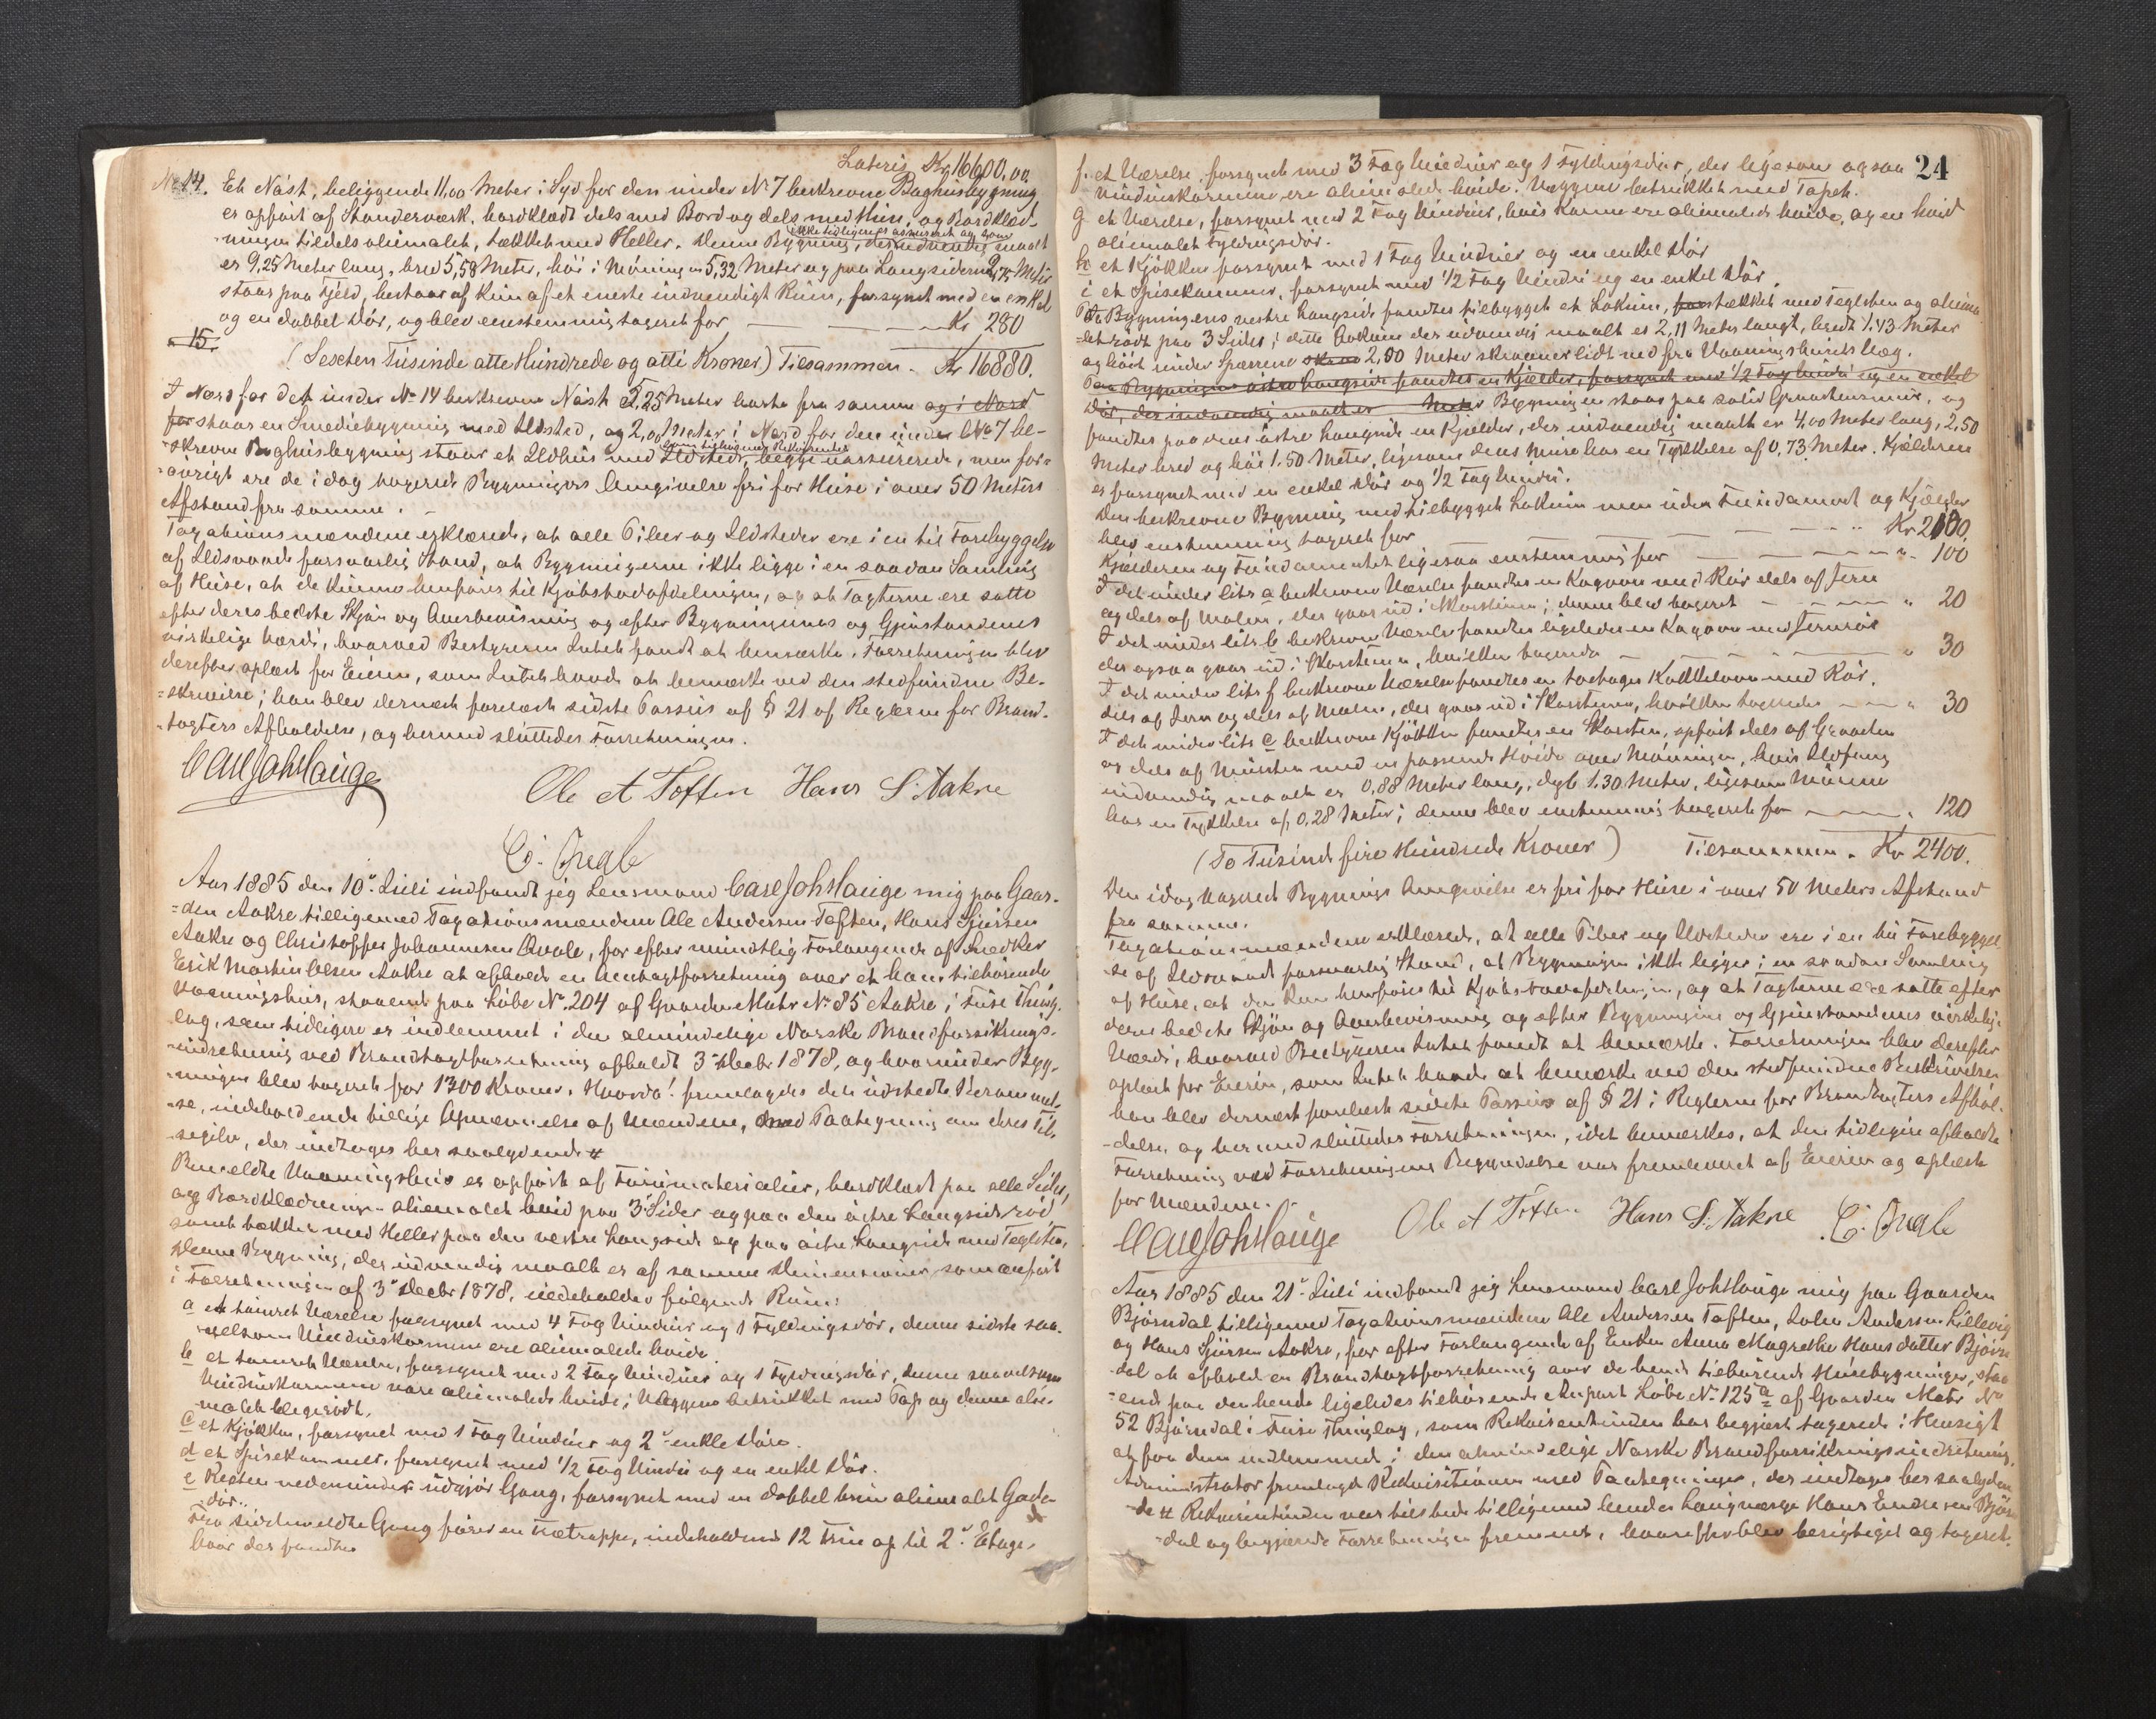 Lateris Kr 16600,00
No 14. Et Nást, beliggende 11,00 Meter i Syd for den under No 7 beskrevne Baghusbygning
er opfört af Standerværk, bordklædt dels med Bord og dels med Hun, og Bordklæd-
ningen tildels oliemalet, tækket med Heller. Denne Bygning, ikke tidligere assureret og som udvendig maalt
er 9,25 Meter lang, bred 5,58 Meter, höi i Möningen 5,32 Meter og paa Langsiderne 2,75 Meter
staar paa Fjeld, bestaar af kun af et eneste indvendigt Rum, forsynet med en enkel
og en dobbel Dör, og blev eenstemmig taxeret for — Kr 280
15.
(Sexten Tusinde otte Hundrede og otti Kroner) Tilsammen - Kr 16880.
I Nord for det under No 14 beskrevne Nást 2,25 Meter borte fra samme og i Nord
for staar en Smediebygning med Ildsted, og 2,00 Meter i Nord for den under No 7 be-
skrevne Baghusbygning staar et Ildhus med Ildsted, begge uassurerede, men for-
övrigt ere de i dag taxerede Bygningers Omgivelse fri for Huse i over 50 Meters
Afstand fra samme. -
Taxationsmændene erklærede, at alle Piber og Ildsteder ere i en til Forebyggelse
af Ildsvaade forsvarlig Stand, at Bygningerne ikke ligge i en saadan Samling
af Huse, at de kunne henföres til Kjöbstadafdelingen, og at Taxterne ere satte
efter deres bedste Skjön og Overbevisning og efter Bygningernes og Gjenstandenes
virkelige Værdi, hvorved Bestyreren Intet fandt at bemærke. Forretningen blev
derefter oplæst for Eieren, som Intet havde at bemærke ved den stedfundne Be-
skrivelse; han blev dernæst forelæst sidste Passus af § 21 af Reglerne for Brand-
taxters Afholdelse, og hermed sluttedes Forretningen.
Carl Joh Hauge
Ole A Toften Hans S. Aakre
C. Qvale
Aar 1885 den 10de Juli indfandt jeg Lensmand Carl Joh Hauge mig paa Gaar-
den Aakre tilligemed Taxationsmændene Ole Andersen Toften, Hans Sjursen
Aakre og Christoffer Johannesen Qvale, for efter mundtlig Forlangende af Snedker
Erik Martin Olsen Aakre at afholde en Omtaxtforretning over et ham tilhörende
Vaaningshus, staaende paa Löbe No 204 af Gaarden Matr No 85 Aakre i Fuse Thing-
lag, som tidligere er indlemmet i den almindelige Norske Brandforsikrings-
indretning ved Brandtaxtforretning afholdt 3die Decbr 1878, og hvorunder Byg-
ningen blev taxeret for 1300 Kroner. Hvorda! fremlagdes den udstedte Ræqvisitel-
se, indeholdende tillige Opnævnelse af Mændene, med Paategning om deres Til-
sigelse, der indtages her saalydende #
Bemeldte Vaaningshus er opfört af Furumaterialier, bordklædt paa alle Sider,
og Bordklædningen oliemalet hvid paa 3 Sider og paa den östre Langside röd
samt tækket med Heller paa den vestre Langside og paa östre Langside med Teglsten.
Denne Bygning, der udvendig maalt er af samme Dimensioner, som anfört
i Forretningen af 3die Decbr 1878, indeholder fölgende Rum:
a et tömret Værelse forsynet med 4 Fag Vinduer og 1 Fyldningsdör, denne sidste saa-
velsom Vindueskarmene ere oliemalede hvide.
b et tömret Værelse, forsynet med 2 Fag Vinduer og 1 Fyldningsdör, denne saavelsom
Vindueskarmene vare oliemalede hvide; Væggene betrukket med Tap og denne olie-
malet blegerödt.
c et Kjökken, forsynet med 1 Fag Vinduer og 2de enkle Döre.
d et Spisekammer, forsynet med 1/2 Fag Vindu og en enkel Dör.
e Resten nedenunder udgjör Gang, forsynet med en dobbel brun oliemalet Gade-
dör..
Fra sidstmeldte Gang förer en Trætrappe, indeholdende 12 Trin op til 2den Etage,
hvor der fandtes
24
f. et Værelse, forsynet med 3 Fag Vinduer og 1 Fyldningsdör, der ligesom ogsaa
Vindueskarmene ere oliemalede hvide. Væggene betrukket med Tapet.
g et Værelse, forsynet med 2 Fag Vinduer, hvis Karme ere oliemalede hvide, og en hvid
oliemalet Fyldningsdör.
h et Kjökken forsynet med 1 Fag Vinduer og en enkel Dör
i et Spisekammer, forsynet med 1/2 Fag Vindu og en enkel Dör.
Paa Bygningens vestre Langside fandtes tilbygget et Lokum, tækket med Teglsten og oliema-
let rödt paa 3 Sider; dette Lokum der udvendig maalt er 2,11 Meter langt, bredt 1,43 Meter
og höit under Spærrene 2,00 Meter skraaner lidt ned fra Vaaningshusets Væg.
Paa Bygningens östre Langside fandtes en Kjælder, forsynet med 1/2 Fag Vindu og en enkel
Dör, der indvendig maalt er Meter Bygningen staar paa solid Graastensmur, og
fandtes paa dens östre Langside en Kjælder, der indvendig maalt er 4,00 Meter lang, 2,50
Meter bred og höi 1,50 Meter, ligesom dens Mure har en Tykkelse af 0,73 Meter. Kjælderen
er forsynet med en enkel Dör og 1/2 Fag Vindu.
Den beskrevne Bygning med tilbygget Lokum men uden Fundament og Kjælder
blev enstemmig taxeret for — Kr 2100.
Kjælderen og Fundamentet ligesaa enstemmig for — " 100
I det under litr a beskrevne Værelse fandtes en Kagovn med Rör dels af Jern
og dels af Malm, der gaar ud i Skorstenen; denne blev taxeret — " 20
I det under litr b beskrevne Værelse fandtes ligeledes en Kagovn med Jernrör
der ogsaa gaar ud i Skorstenen, hvilken taxeredes — " 30
I det under litr f beskrevne Værelse fandtes en toetages Kakkelovn med Rör,
dels af Jern og dels af Malm, der gaar ud i Skorstenen, hvilken taxeredes — " 30
I det under litr c beskrevne Kjökken fandtes en Skorsten, opfört dels af Graasten
og dels af Mursten med en passende Höide over Möningen, hvis Ildfang
indvendig maalt er 0,88 Meter lang, dyb 1,30 Meter, ligesom Murene
har en Tykkelse af 0,28 Meter; denne blev enstemmig taxeret for — " 120
(To Tusinde fire Hundrede Kroner) Tilsammen - Kr 2400.
Den idag taxerede Bygnings Omgivelse er fri for Huse i over 50 Meters Afstand
fra samme.
Taxationsmændene erklærede, at alle Piber og Ildsteder ere i en til Forebyggel-
se af Ildsvaade forsvarlig Stand, at Bygningen ikke ligger i en saadan Samling
af Huse, at den kan henföres til Kjöbstadafdelingen, og at Taxterne ere satte efter
deres bedste Skjön og Overbevisning og efter Bygningens og Gjenstandenes virkelige
Værdi, hvorved Bestyreren Intet fandt at bemærke. Forretningen blev derefter
oplæst for Eieren, som Intet havde at bemærke ved den stedfundne Beskrivelse
han blev dernæst forelæst sidste Passus af § 21 i Reglerne for Brandtaxters Afhol-
delse, og hermed sluttedes Forretningen, idet bemærkes, at den tidligere afholdte
Forretning ved Forretningens Begyndelse var fremleveret af Eieren og oplæst
for Mændene.
Carl Joh Hauge Ole A Toften Hans S. Aakre C. Qvale
Aar 1885 den 21de Juli indfandt jeg Lensmand Carl Joh Hauge mig paa Gaarden
Björndal tilligemed Taxationsmændene Ole Andersen Toften, Anderson Lillevig
og Hans Sjursen Aakre, for efter Forlangende af Enken Anna Magrethe Hansdatter Björn-
dal at afholde en Brandtaxtforretning over de hende tilhörende Husebygninger, staa-
ende paa den hende ligeledes tilhörende Anpart Löbe No 125a af Gaarden Matr No
52 Björndal i Fuse Thinglag, som Rekvirentinden har begjært taxerede i Hensigt
at faa dem indlemmet i den almindelige Norske Brandforsikringsindretning.
Administrator fremlagde Rekvisitionen med Paategninger, der indtages her saalyden-
de # Rekvirentinden var tilstede tilligemed hendes Laugværge Hans Endresen Björn-
dal og begjærede Forretningen fremmet, hvorefter blev besigtiget og taxeret.